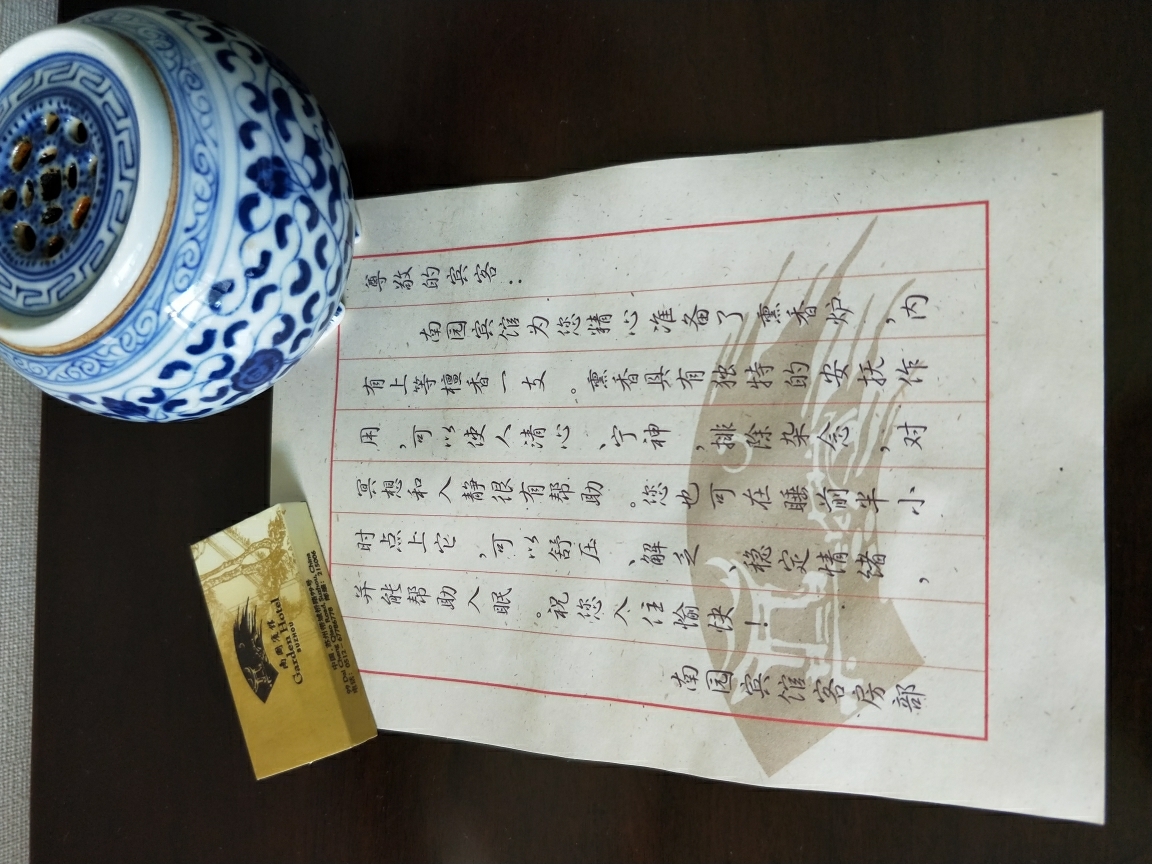 尊敬的宾客：
南园宾馆为您精心准备了熏香炉，内
有上等檀香一支。熏香具有独特的安抚作
用，可以使人清心、宁神，排除杂念，对
冥想和入静很有帮助。您也可在睡前半小
时点上它，可以舒压、解乏、稳定情绪，
并能帮助入眠。祝您入住愉快！
南园宾馆客房部
Garden Hotel
SUZHOU